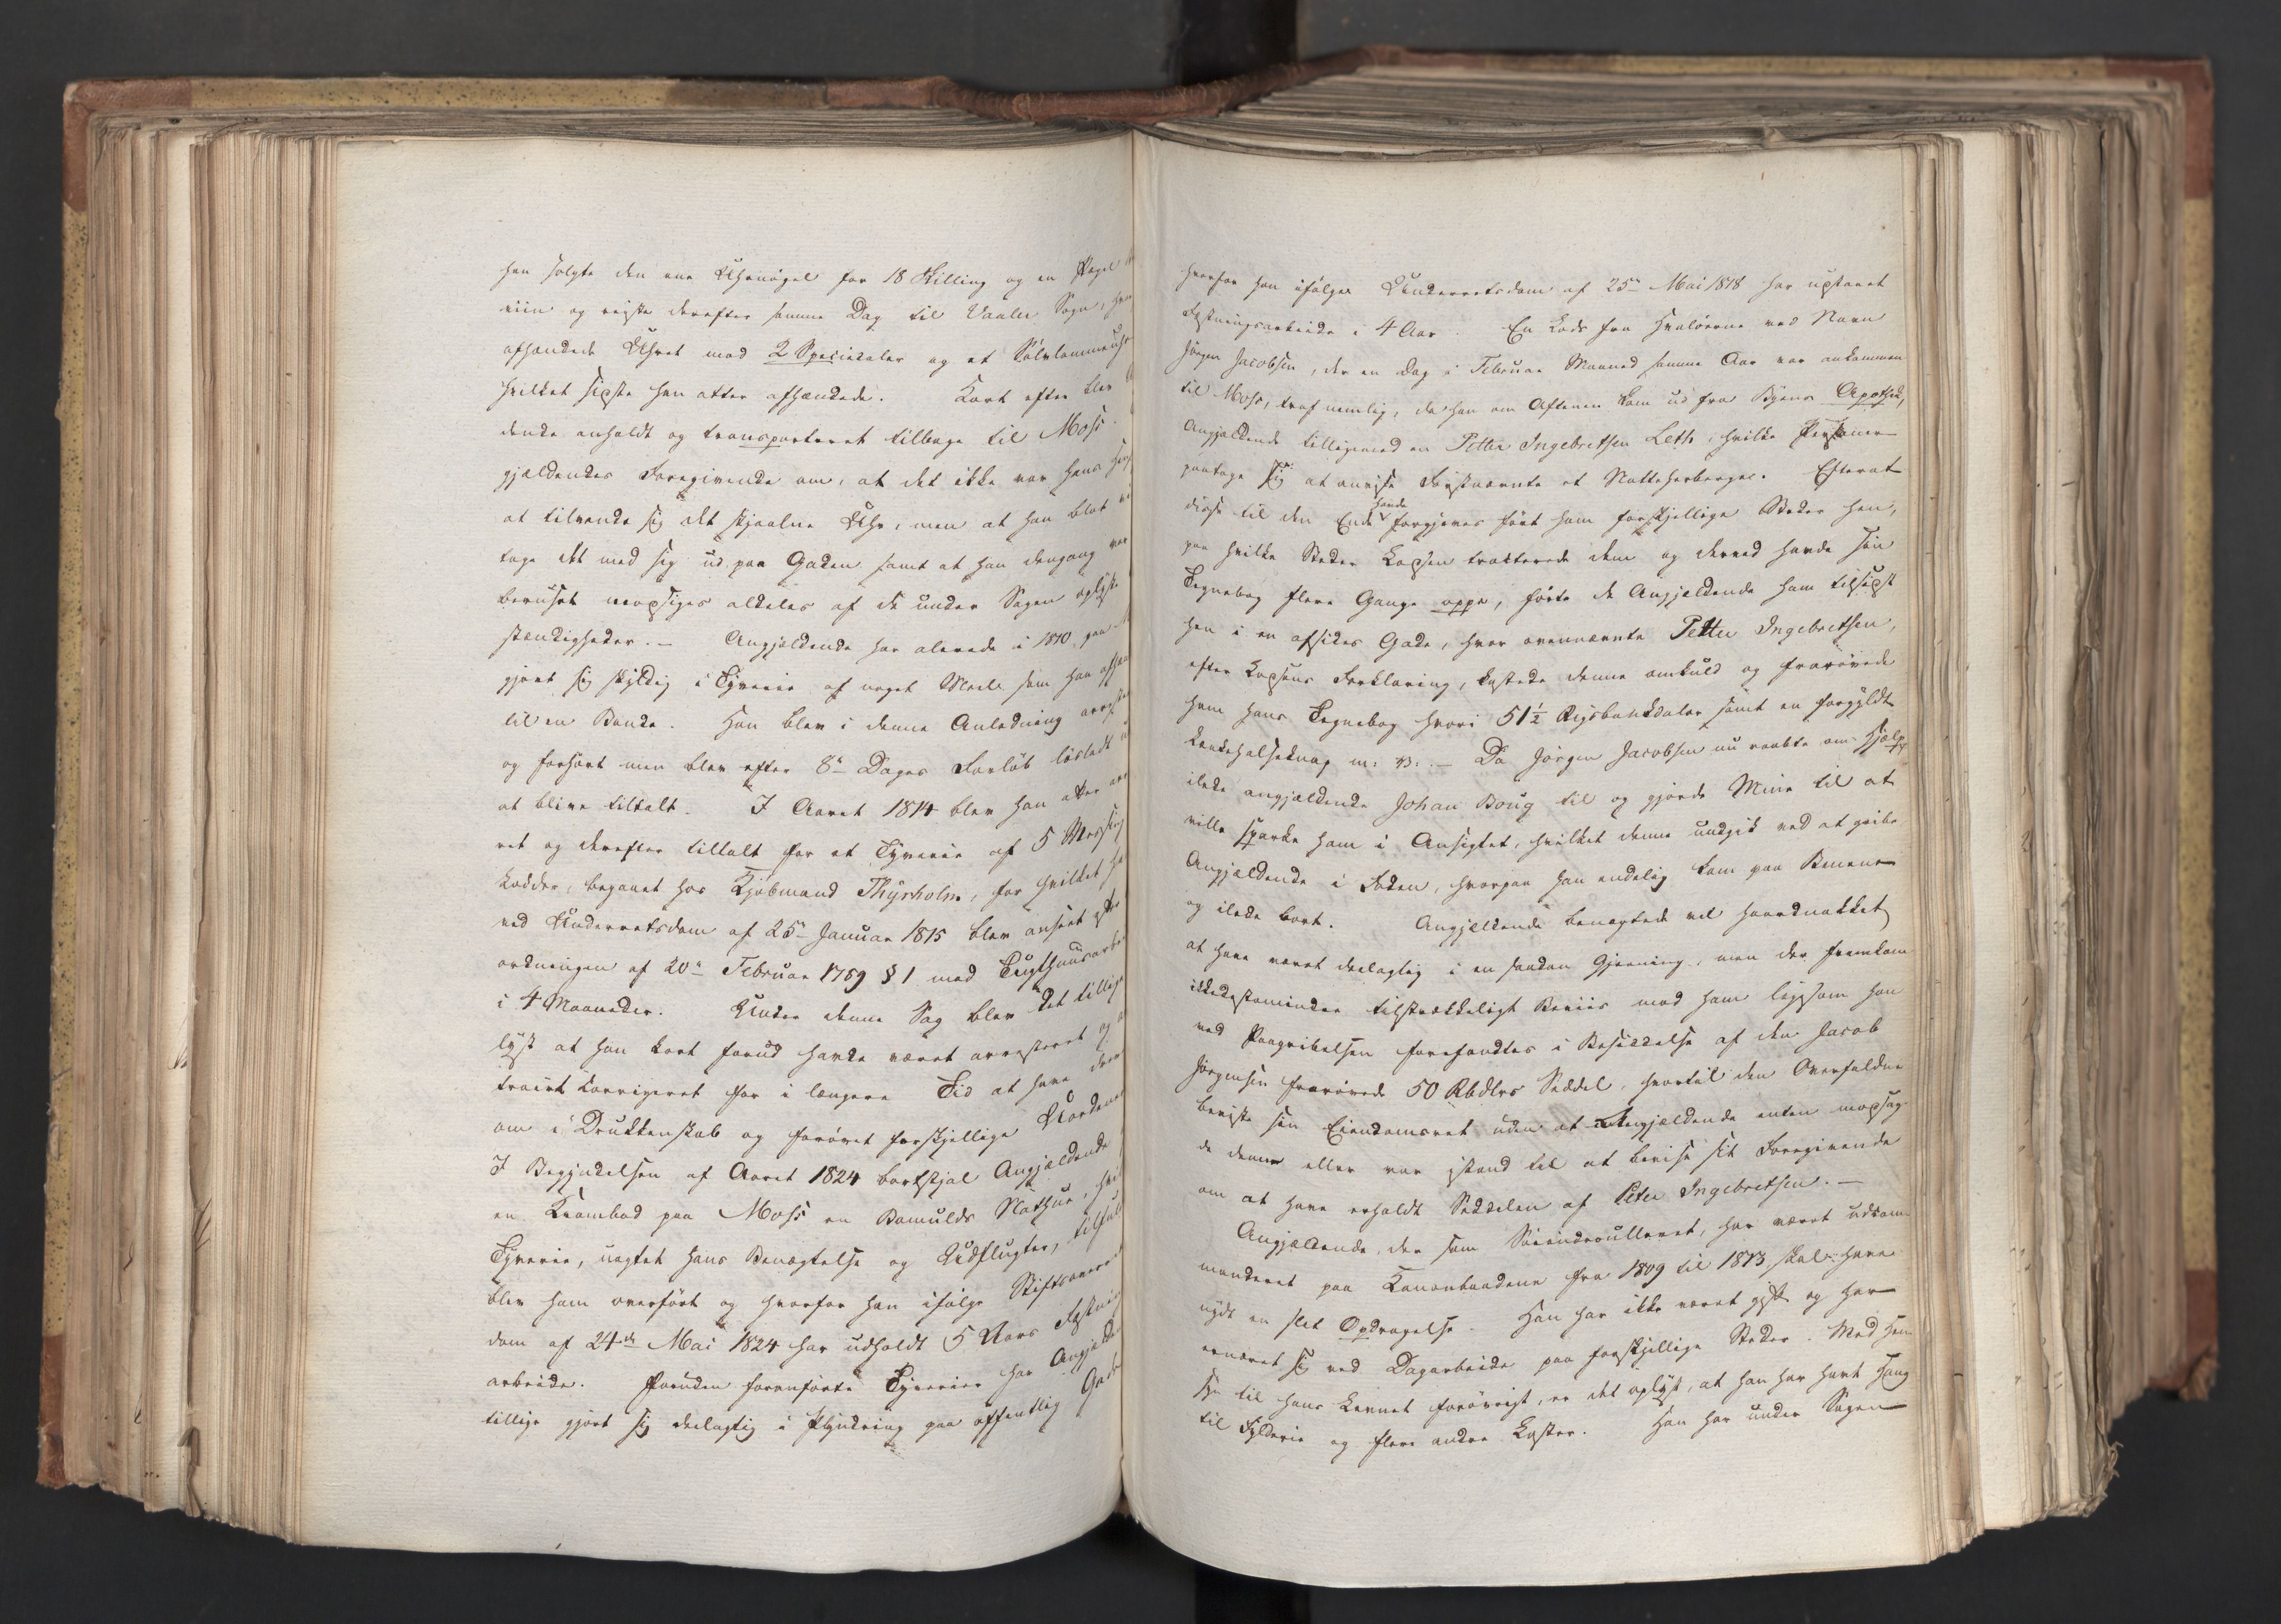 han solgte den ene Uhrnøgel for 18 Skilling og en Pægel
viin og reiste derefter samme Dag til Vaaler Sogn, hvor
afhændede Uhret mod 2 Speciedaler og et Sølvlommeuhr
hvilket sidste han atter afhændede. Kort efter blev
dende anholdt og transporteret tilbage til Moss.
gjældendes Foregivende om, at det ikke var hans
at tilvende sig det stjaalne Uhr, men at han blot
tage det med sig ud paa Gaden samt at han dengang var
beruset modsiges aldeles af de under Sagen oplyste
stændigheder. – Angjældende har alerede i 1810 paa
gjort sig skyldig i Tyverie af noget Meel som han
til en Bonde. Han blev i denne Anledning
og forhørt men blev efter 8te Dages Forløb løsladt
at blive tiltalt. I Aaret 1814 blev han atter
ret og derefter tiltalt for et Tyverie af 5 Messing
Lodder, begaaet hos Kjøbmand Thyrholm, for hvilket
ved Underretsdom af 25de Januar 1815 blev anseet efter
ordningen af 20de Februar 1789 § 1 med Tugthuusarbei
i 4 Maaneder. Under denne Sag blev det tillige
lyst at han kort forud havde været arresteret og
traint Corrigeret for i længere Tid at have
om i Drukkenskab og forøvet forskjellige Uordener
I Begyndelsen af Aaret 1824 bortstjal Angjældende
en Krambod paa Moss en Bomulds Nathue,
Tyverie, uagtet hans Benægtelse og Udflugter,
blev ham overført og hvorfor han ifølge Stiftsoverrets
dom af 24de Mai 1824 har udholdt 5 Aars Fæstnings
arbeide. Foruden foranførte Tyverier har Angjælde
tillige gjort sig deelagtig i Plyndring paa offentlig Gade
hvorfor han ifølge Underretsdom af 25de Mai 1818 har udstaaet
Fæstningsarbeide i 4 Aar. En Lods fra Hvaløerne ved Navn
Jørgen Jacobsen, der en Dag i Februar Maaned samme Aar var ankommen
til Moss, traf nemlig, da han om Aftenen kom ud fra Byens Apothek,
Angjældende tilligemed en Petter Ingebretsen Leth, hvilke Personer
paatoge sig at anvise Førstnævnte et Natteherberge. Efterat
disse til den Ende havde forgjeves ført ham forskjellige Steder hen,
paa hvilke Steder Lodsen tracterede dem og derved havde sin
Tegnebog flere Gange oppe, førte de Angjældende ham tilsidst
hen i en afsides Gade, hvor ovennævnte Petter Ingebretsen,
efter Lodsens Forklaring, kastede denne omkuld og frarøvede
ham hans Tegnebog hvori 51½ Rigsbankdaler samt en forgyldt
Lænkehalseknap m: v:. – Da Jørgen Jacobsen nu raabte om Hjælp
ilede angjældende Johan Boug til og gjorde Mine til at
ville sparke ham i Ansigtet, hvilket denne undgik ved at gribe
Angjældende i Foden, hvorpaa han endelig kom paa Benene
og ilede bort. Angjældende benægtede vel haardnakket
at have været deelagtig i en saadan Gjerning, men der fremkom
ikkedestomindre tilstrækkeligt Beviis mod ham ligesom han
ved Paagribelsen forefandtes i Besiddelse af den Jacob
Jørgensen frarøvede 50 Rbdlrs Seddel, hvortil den Overfaldne
beviste sin Eiendomsret uden at Angjældende enten modsag-
de denne eller var istand til at bevise sit Foregivende
om at have erholdt Seddelen af Peter Ingebretsen. –
Angjældende, der som Søeindroulleret, har været udcom-
manderet paa Kanonbaadene fra 1809 til 1813 skal have
nydt en slet Opdragelse. Han har ikke været gift og har
ernæret sig ved Dagarbeide paa forskjellige Steder. Med Hen-
syn til hans Levnet forøvrigt, er det oplyst, at han har havt Hang
til Fylderie og flere andre Laster. Han har under Sagen